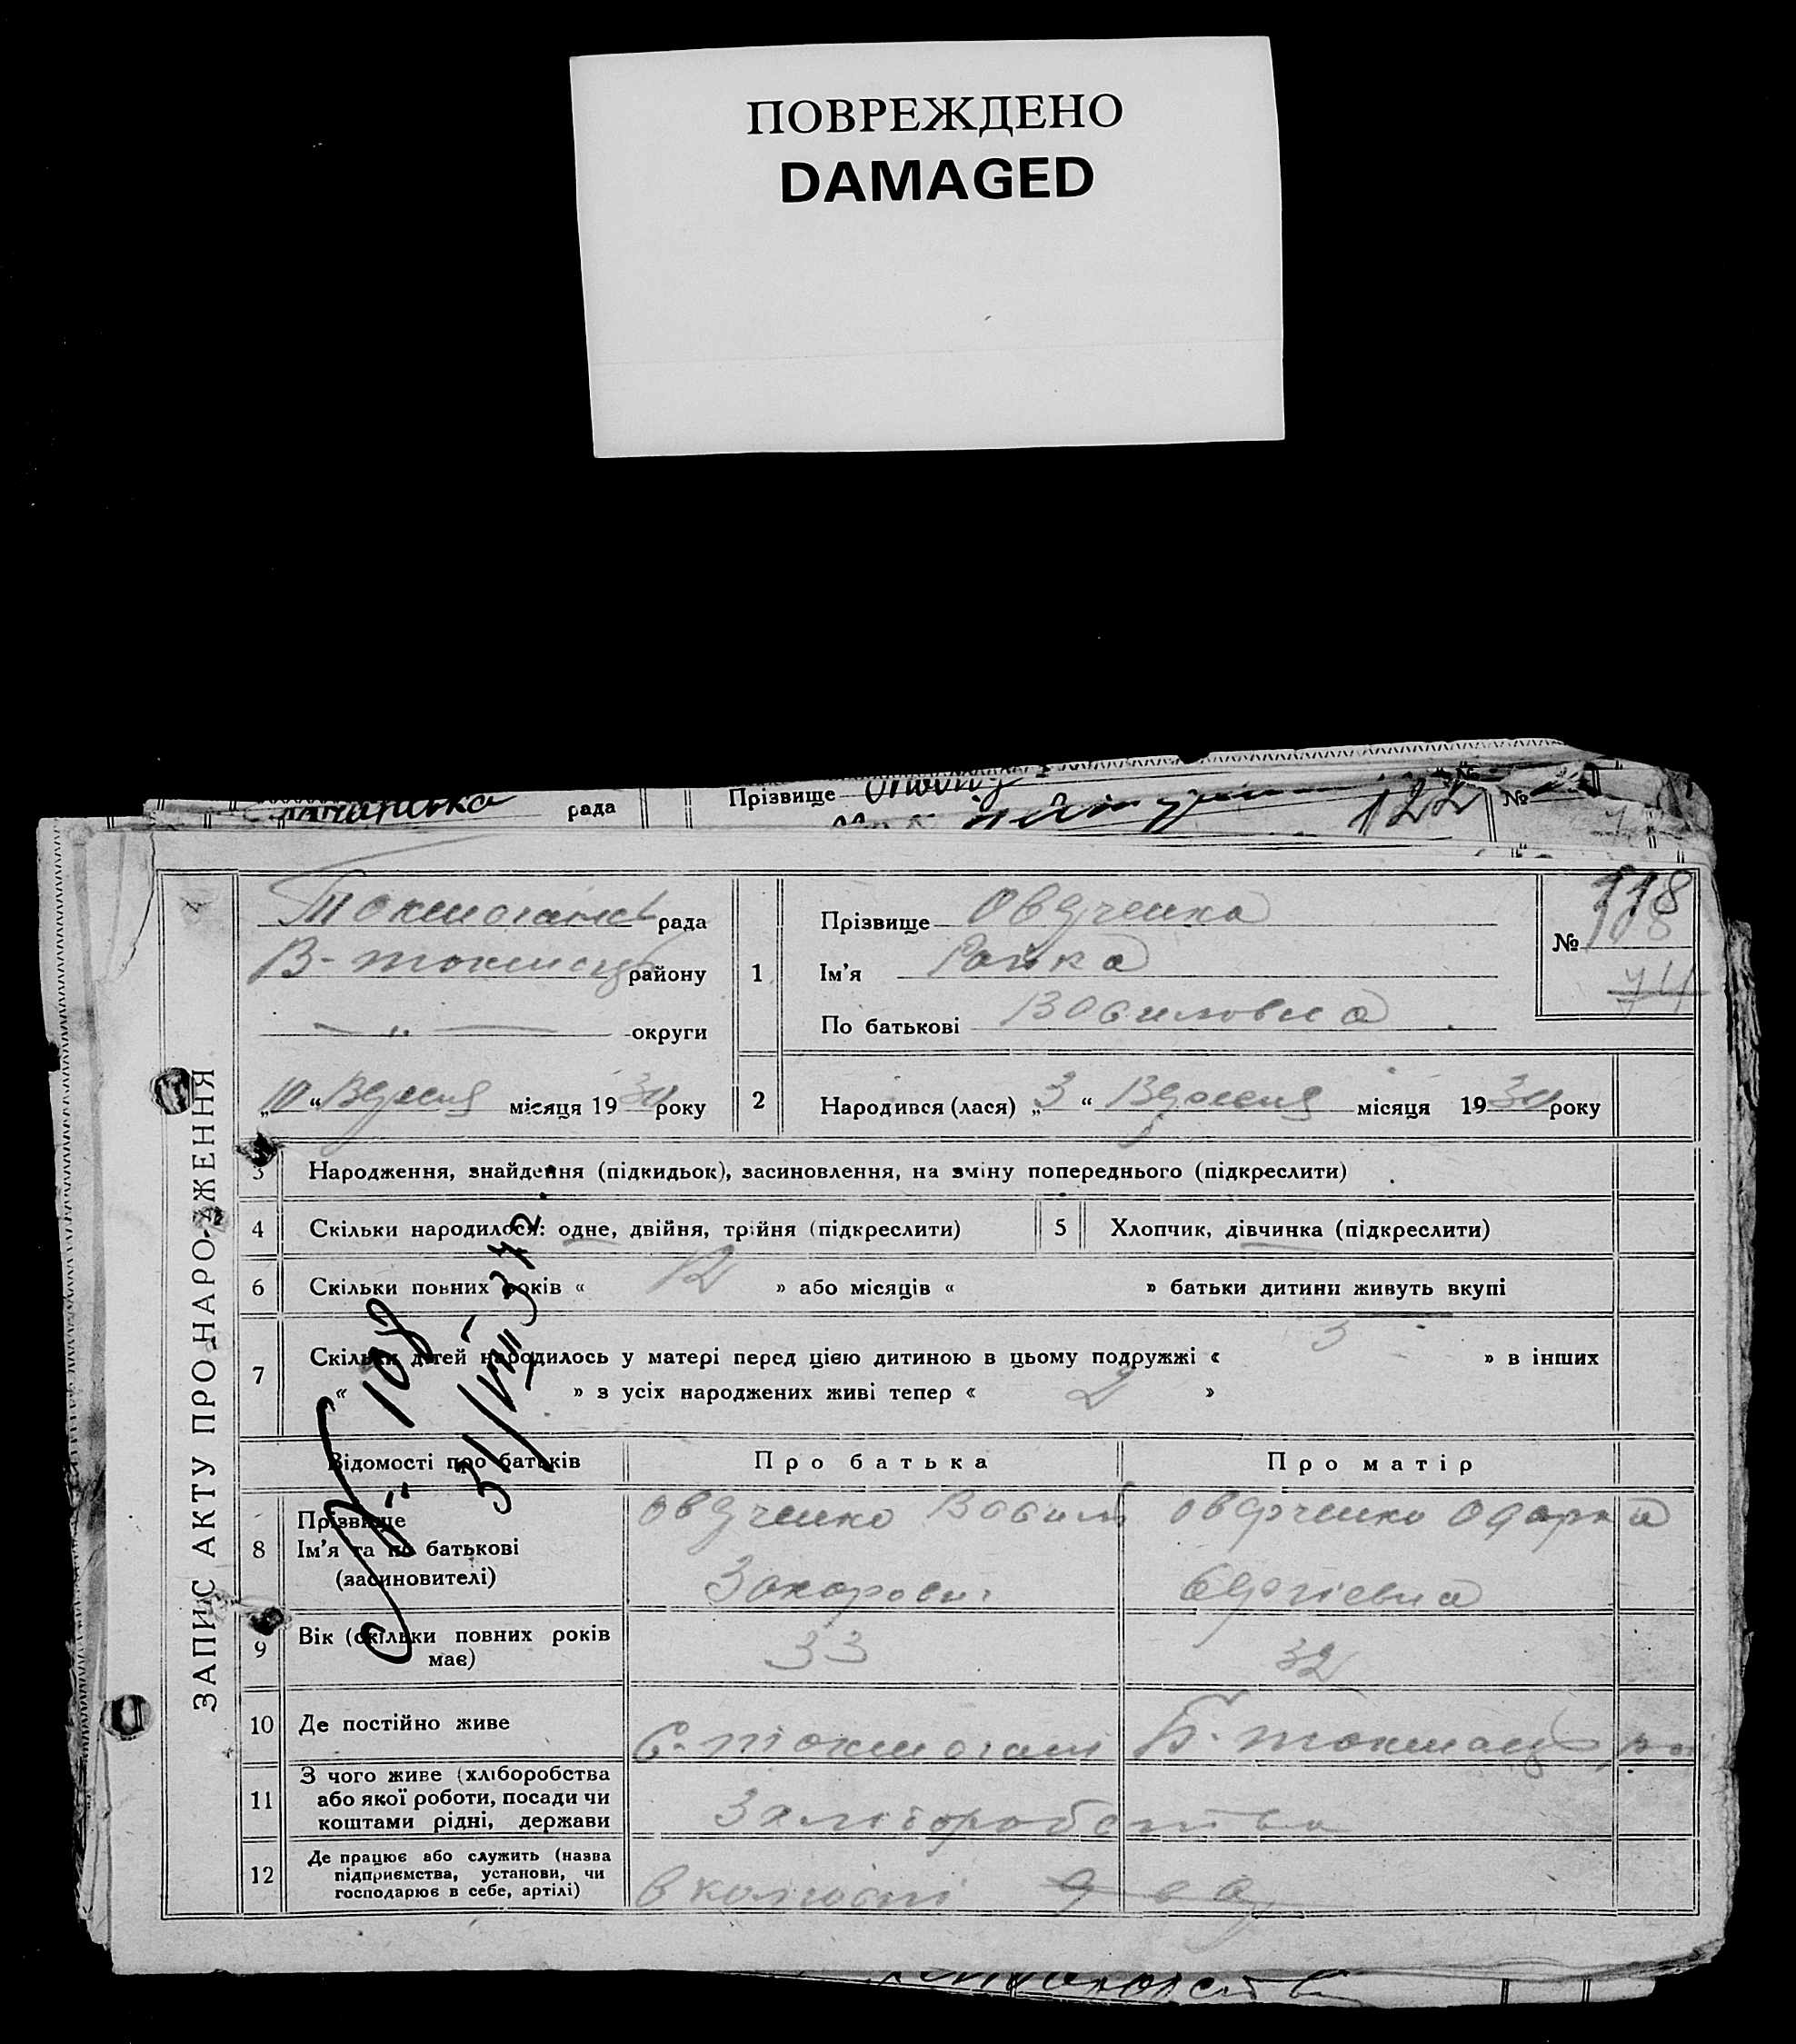 ПОВРЕЖДЕНО
DAMAGED
рада
Прізвище
122
№
ЗАПИС АКТУ ПРО НАРОДЖЕННЯ
рада
В-токмац району
„ округи
„10“ Вересня місяця 1930 року
1
Прізвище Овдченко
Ім'я Райка
По батькові Василовна
№ 118
74
2
Народився (лася) „3“ Вересня місяця 1930 року
3 Народження, знайдення (підкидьок), засиновлення, на зміну попереднього (підкреслити)
4 Скільки народилося: одне, двійня, трійня (підкреслити) 5 Хлопчик, дівчинка (підкреслити)
6 Скільки повних років « 12 » або місяців « » батьки дитини живуть вкупі
7 Скільки дітей народилось у матері перед цією дитиною в цьому подружжі « 3 » в інших
« » з усіх народжених живі тепер « 2 »
Відомості про батьків Про батька Про матір
8 Прізвище
Ім'я та по батькові
(засиновителі)
Овдченко Василь
Захарович
Овдрченко Одарка
Сергіевна
9 Вік (скільки повних років має) 33 32
10 Де постійно живе Б. токмац
11 З чого живе (хліборобства
або якої роботи, посади чи
коштами рідні, держави
З хліборобства
12 Де працює або служить (назва
підприємства, установи, чи
господарює в себе, артілі)
в колгоспі
31/VIII-34 р.